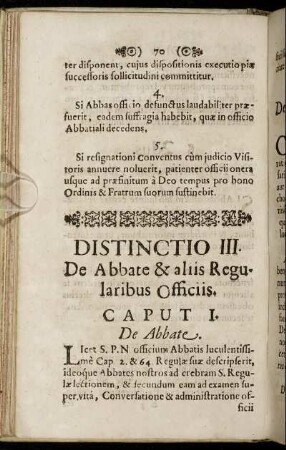 70
ter disponent, cujus dispositionis executio piæ
successoris sollicitudini committitur.
4.
Si Abbas officio defunctus laudabiliter præ-
fuerit, eadem suffragia habebit, quæ in officio
Abbatiali decedens.
5.
Si resignationi Conventus cùm judicio Visi-
toris annuere noluerit, patienter officii onera
usque ad præfinitum à Deo tempus pro bono
Ordinis & Fratrum suorum sustinebit.
DISTINCTIO III.
De Abbate & aliis Regu-
laribus Officiis.
CAPUT I.
De Abbate.
LIcet S. P. N officium Abbatis luculentissi-
mè Cap 2. & 64 Regulæ suæ descripserit,
ideoque Abbates nostros ad crebram S. Regu-
læ lectionem, & secundum eam ad examen su-
per vita, Conversatione & administratione of-
ficii